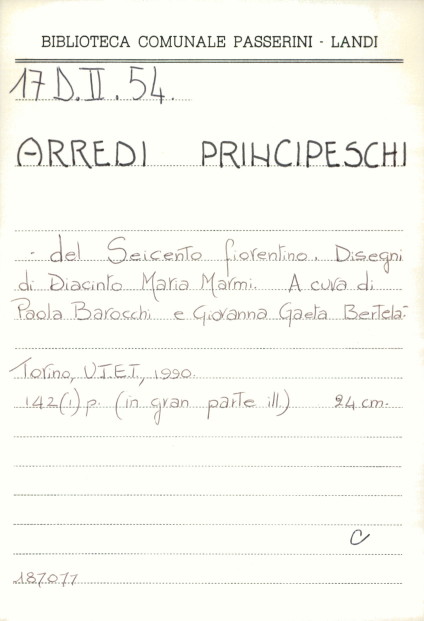 BIBLIOTECA COMUNALE PASSERINI - LANDI
17 D.II.54.
ARREDI PRINCIPESCHI
- del Seicento fiorentino. Disegni
di Diacinto Maria Marmi. A cura di
Paola Barocchi e Giovanna Gaeta Bertelà.
Torino, U.T.E.T., 1990.
142(1) p. (in gran parte ill.) 24 cm.
C
187077